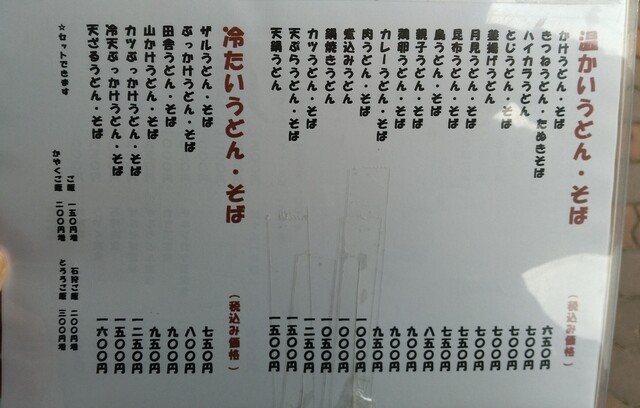 温かいうどん・そば (税込み価格)
かけうどん・そば 六五〇円
きつねうどん・たぬきそば 七〇〇円
ハイカラうどん 七〇〇円
とじうどん・そば 七〇〇円
釜揚げうどん 七〇〇円
月見うどん・そば 七五〇円
昆布うどん・そば 七五〇円
鳥うどん・そば 八五〇円
親子うどん・そば 九〇〇円
鶏卵うどん・そば 九〇〇円
カレーうどん・そば 九五〇円
肉うどん・そば 一〇〇〇円
煮込みうどん 一〇〇〇円
鍋焼きうどん 一〇五〇円
カツうどん・そば 一二五〇円
天ぷらうどん・そば 一五〇〇円
天鍋うどん 一五〇〇円
冷たいうどん・そば (税込み価格)
ザルうどん・そば 七五〇円
ぶっかけうどん・そば 八〇〇円
田舎うどん・そば 九〇〇円
山かけうどん・そば 九五〇円
カツぶっかけうどん・そば 一二五〇円
冷天ぶっかけうどん・そば 一五〇〇円
天ざるうどん・そば 一六〇〇円
☆セットできます
ご飯 一五〇円増 石狩ご飯 二〇〇円増
かやくご飯 二〇〇円増 とろろご飯 三〇〇円増